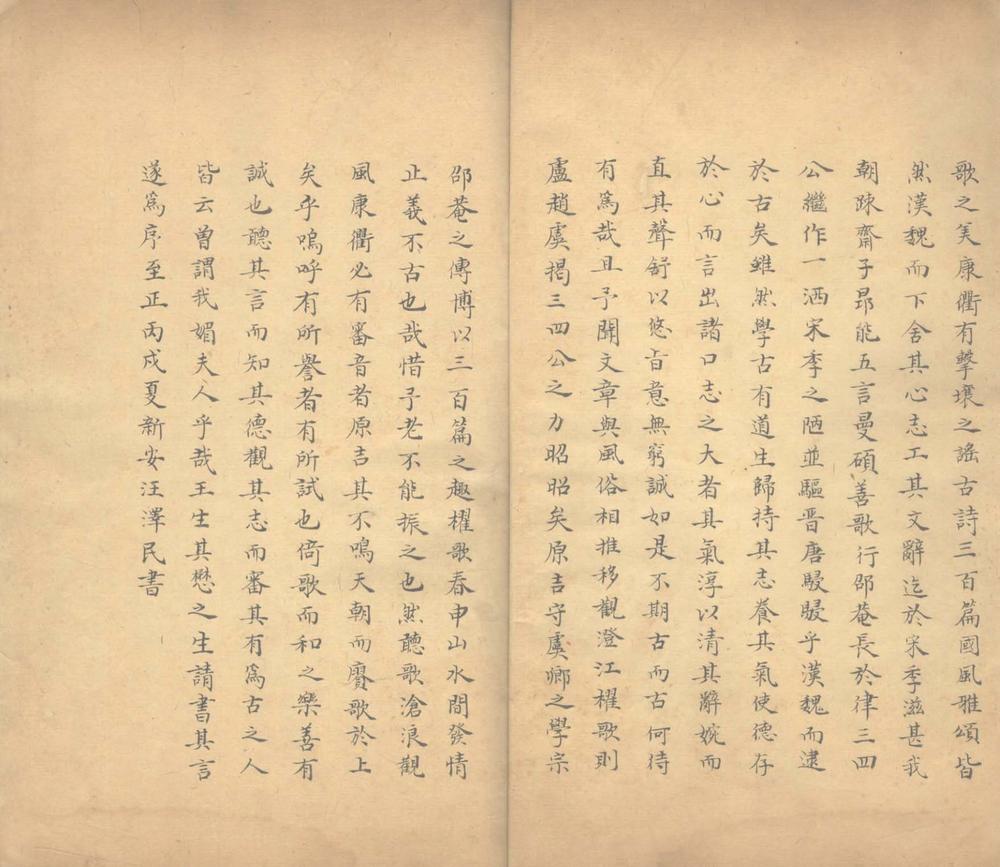 歌之美康衢有擊壤之謠古詩三百篇國風雅頌皆
然漢魏而下舍其心志工其文辭迄於宋季滋甚我
朝踈齋子昂能五言曼碩善歌行邵菴長於律三四
公繼作一洒宋季之陋並驅晋唐駸駸乎漢魏而逮
於古矣雖然學古有道生歸持其志養其氣使德存
於心而言出諸口志之大者其氣淳以清其辭婉而
直其聲舒以悠旨意無窮誠如是不期古而古何待
有爲哉且予聞文章與風俗相推移觀澄江櫂歌則
盧趙虞揭三四公之力昭昭矣原吉守虞鄉之學宗
邵菴之傳博以三百篇之趣櫂歌春申山水間發情
止義不古也哉惜予老不能振之也然聽歌滄浪觀
風康衢必有審音者原吉其不鳴天朝而賡歌於上
矣乎嗚呼有所譽者有所試也倚歌而和之樂善有
誠也聽其言而知其德觀其志而審其有爲古之人
皆云曾謂我媚夫人乎哉王生其懋之生請書其言
遂爲序至正丙戍夏新安汪澤民書